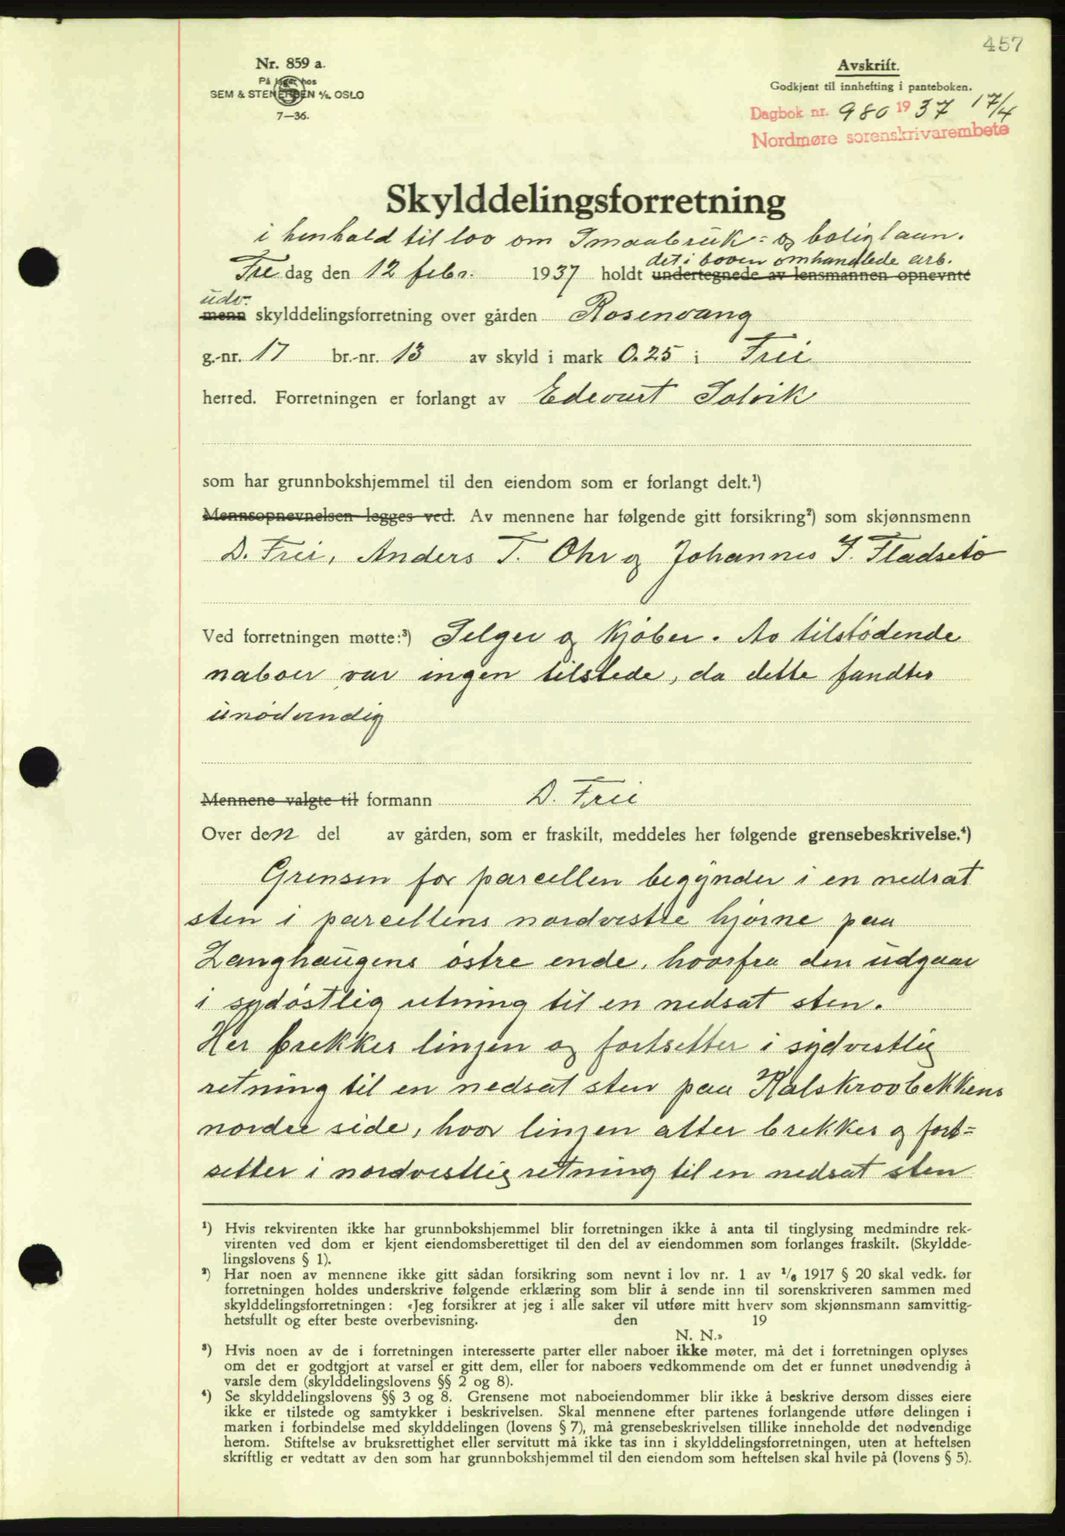 457
Nr. 859 a.
På lager hos
SEM & STENERSEN A/S, OSLO
7—36.
Avskrift.
Godkjent til innhefting i panteboken.
Dagbok nr. 980 1937 17/4
Nordmøre sorenskrivarembete
Skylddelingsforretning
i henhold til lov om Smaabruk- og boliglaan.
det i loven omhandlede arb.
Fre dag den 12 febr. 1937 holdt undertegnede av lensmannen opnevnte
udv.
menn skylddelingsforretning over gården Rosenvang
g.-nr. 17 br.-nr. 13 av skyld i mark 0.25 i Frei
herred. Forretningen er forlangt av Edevart Solvik
som har grunnbokshjemmel til den eiendom som er forlangt delt.¹)
Mennsopnevnelsen legges ved. Av mennene har følgende gitt forsikring²) som skjønnsmenn
D. Frei, Anders T. Ohr og Johannes J. Fladsetø
Ved forretningen møtte:³) Selger og Kjøber. Av tilstødende
naboer var ingen tilstede, da dette fandtes
unødvendig
Mennene valgte til formann D. Frei
Over den del av gården, som er fraskilt, meddeles her følgende grensebeskrivelse.⁴)
Grensen for parcellen begynder i en nedsat
sten i parcellens nordvestre hjørne paa
Langhaugens østre ende, hvorfra den udgaar
i sydøstlig retning til en nedsat sten.
Her brekker linjen og fortsetter i sydvestlig
retning til en nedsat sten paa Kalskrovbekkens
nordre side, hvor linjen atter brekker og fort-
setter i nordvestlig retning til en nedsat sten
¹) Hvis rekvirenten ikke har grunnbokshjemmel blir forretningen ikke å anta til tinglysing medmindre rek-
virenten ved dom er kjent eiendomsberettiget til den del av eiendommen som forlanges fraskilt. (Skyldde-
lingslovens § 1).
²) Har noen av mennene ikke gitt sådan forsikring som nevnt i lov nr. 1 av 1/6 1917 § 20 skal vedk. før
forretningen holdes underskrive følgende erklæring som blir å sende inn til sorenskriveren sammen med
skylddelingsforretningen: «Jeg forsikrer at jeg i alle saker vil utføre mitt hverv som skjønnsmann samvittig-
hetsfullt og efter beste overbevisning. den 19
N. N.»
³) Hvis noen av de i forretningen interesserte parter eller naboer ikke møter, må det i forretningen oplyses
om det er godtgjort at varsel er gitt dem, eller for naboers vedkommende om det er funnet unødvendig å
varsle dem (skylddelingslovens §§ 2 og 8).
⁴) Se skylddelingslovens §§ 3 og 8. Grensene mot naboeiendommer blir ikke å beskrive dersom disses eiere
ikke er tilstede og samtykker i beskrivelsen. Skal mennene efter partenes forlangende utføre delingen i
marken i forbindelse med skylddelingen (lovens § 7), må grensebeskrivelsen tillike inneholde det nødvendige
herom. Stiftelse av bruksrettighet eller servitutt må ikke tas inn i skylddelingsforretningen, uten at heftelsen
skriftlig er vedtatt av den som har grunnbokshjemmel til den eiendom som heftelsen skal hvile på (lovens § 5).